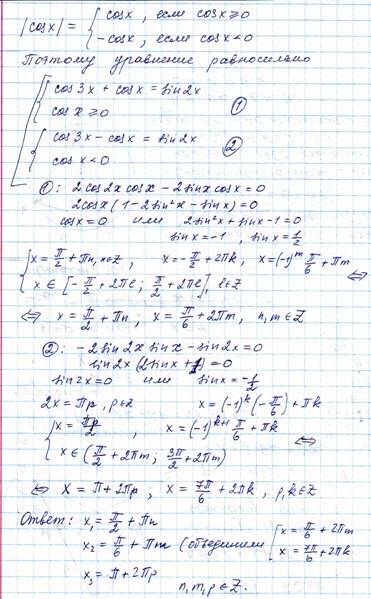 |cosx| = { cosx, если cosx ≥ 0
-cosx, если cosx < 0
Поэтому уравнение равносильно
cos3x + cosx = sin2x
cosx ≥ 0 ①
cos3x - cosx = sin2x ②
cosx < 0
①: 2cos2x cosx - 2sinx cosx = 0
2cosx (1 - 2sin²x - sinx) = 0
cosx = 0 или 2sin²x + sinx - 1 = 0
sinx = -1, sinx = 1/2
{ x = π/2 + πn, n∈Z, x = -π/2 + 2πk, x = (-1)^m π/6 + πm
x ∈ [-π/2 + 2πl; π/2 + 2πl], l∈Z ⇔
⇔ x = π/2 + πn, x = π/6 + 2πm, n, m ∈ Z
②: -2sin2x sinx - sin2x = 0
sin2x (2sinx + 1) = 0
sin2x = 0 или sinx = -1/2
2x = πp, p∈Z x = (-1)^k (-π/6) + πk
{ x = πp/2, x = (-1)^{k+1} π/6 + πk
x ∈ (π/2 + 2πm; 3π/2 + 2πm) ⇔
⇔ x = π + 2πp, x = 7π/6 + 2πk, p, k ∈ Z
Ответ: x₁ = π/2 + πn
x₂ = π/6 + πm (объединили [ x = π/6 + 2πm
x = 7π/6 + 2πk
x₃ = π + 2πp
n, m, p ∈ Z.